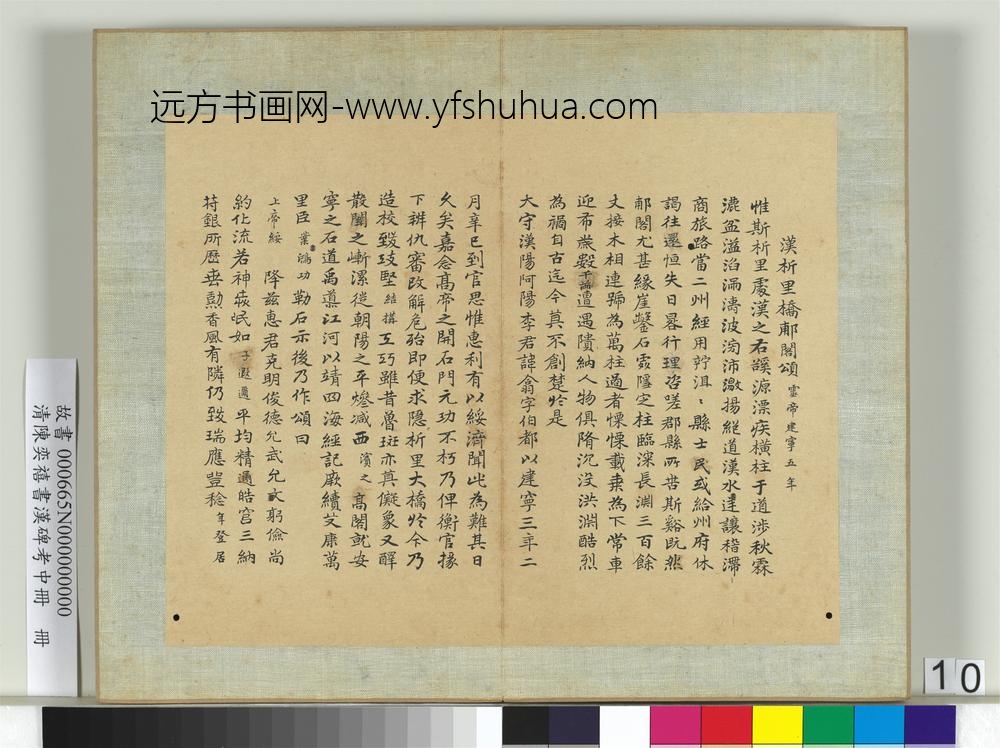 远方书画网-www.yfshuhua.com
漢析里橋郙閣頌 靈帝建寧五年
惟斯析里處漢之右谿源漂疾橫柱于道涉秋霖
漉盆溢滔漏濤波滂沛激揚縱道漢水逆讓稽滯
商旅路當二州經用狞沮〻縣士民或給州府休
謁往還恒失日晷行理咨嗟郡縣所苦斯谿既然
郙閣尤甚緣崖鑿石處隱定柱臨深長淵三百餘
丈接木相連號為萬柱過者慄慄載乗為下常車
迎布歲數千兩遭遇隤納人物俱隋沉沒洪淵酷烈
為禍自古迄今莫不創楚於是
大守漢陽阿陽李君諱翕字伯都以建寧三年二
月辛巳到官思惟惠利有以綏濟聞此為難其日
久矣嘉念髙帝之開石門元功不朽乃俾衡官掾
下辨仇審改解危殆即便求隱析里大橋於今乃
造校致攻堅結構工巧雖昔魯班亦莫儗象又醳
散關之嶃漯從朝陽之平燦减西濱之髙閣就安
寧之石道禹遵江河以靖四海經記厥續艾康萬
里臣業鴻功勒石示後乃作頌曰
上帝綏 降兹惠君克明俊德允武允文躬儉尚
約化流若神㢤氓如子遐邇平均精通皓宫三納
苻銀所歷垂勲香風有隣仍致瑞應豊稔年登居
故書 000665N000000000
清陳奕禧書漢碑考中冊 冊
10